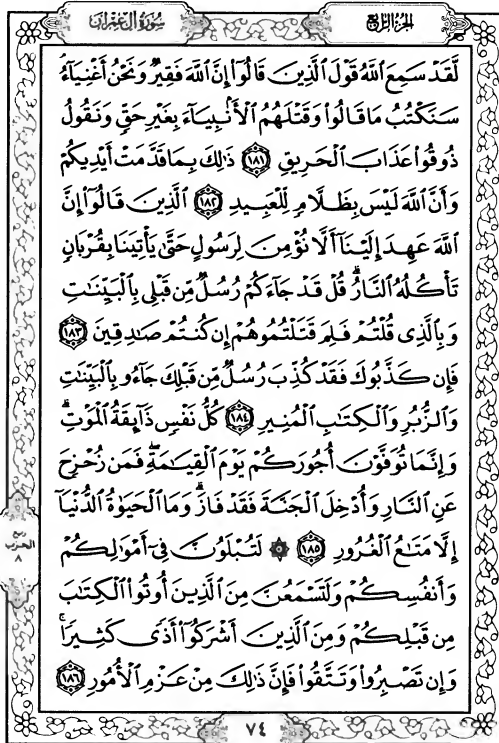 سُورَةُ آلِ عِمْرَان
الجُزْءُ الرَّابِع
لَّقَدْ سَمِعَ ٱللَّهُ قَوْلَ ٱلَّذِينَ قَالُوٓا۟ إِنَّ ٱللَّهَ فَقِيرٌ وَنَحْنُ أَغْنِيَآءُ
سَنَكْتُبُ مَا قَالُوا۟ وَقَتْلَهُمُ ٱلْأَنۢبِيَآءَ بِغَيْرِ حَقٍّ وَنَقُولُ
ذُوقُوا۟ عَذَابَ ٱلْحَرِيقِ ١٨١ ذَٰلِكَ بِمَا قَدَّمَتْ أَيْدِيكُمْ
وَأَنَّ ٱللَّهَ لَيْسَ بِظَلَّامٍ لِّلْعَبِيدِ ١٨٢ ٱلَّذِينَ قَالُوٓا۟ إِنَّ
ٱللَّهَ عَهِدَ إِلَيْنَآ أَلَّا نُؤْمِنَ لِرَسُولٍ حَتَّىٰ يَأْتِيَنَا بِقُرْبَانٍ
تَأْكُلُهُ ٱلنَّارُ ۗ قُلْ قَدْ جَآءَكُمْ رُسُلٌ مِّن قَبْلِى بِٱلْبَيِّنَٰتِ
وَبِٱلَّذِى قُلْتُمْ فَلِمَ قَتَلْتُمُوهُمْ إِن كُنتُمْ صَٰدِقِينَ ١٨٣
فَإِن كَذَّبُوكَ فَقَدْ كُذِّبَ رُسُلٌ مِّن قَبْلِكَ جَآءُو بِٱلْبَيِّنَٰتِ
وَٱلزُّبُرِ وَٱلْكِتَٰبِ ٱلْمُنِيرِ ١٨٤ كُلُّ نَفْسٍ ذَآئِقَةُ ٱلْمَوْتِ ۗ
وَإِنَّمَا تُوَفَّوْنَ أُجُورَكُمْ يَوْمَ ٱلْقِيَٰمَةِ ۖ فَمَن زُحْزِحَ
عَنِ ٱلنَّارِ وَأُدْخِلَ ٱلْجَنَّةَ فَقَدْ فَازَ ۗ وَمَا ٱلْحَيَوٰةُ ٱلدُّنْيَآ
إِلَّا مَتَٰعُ ٱلْغُرُورِ ١٨٥ ۞ لَتُبْلَوُنَّ فِىٓ أَمْوَٰلِكُمْ
وَأَنفُسِكُمْ وَلَتَسْمَعُنَّ مِنَ ٱلَّذِينَ أُوتُوا۟ ٱلْكِتَٰبَ
مِن قَبْلِكُمْ وَمِنَ ٱلَّذِينَ أَشْرَكُوٓا۟ أَذًى كَثِيرًا ۚ
وَإِن تَصْبِرُوا۟ وَتَتَّقُوا۟ فَإِنَّ ذَٰلِكَ مِنْ عَزْمِ ٱلْأُمُورِ ١٨٦
ربع
الحزب
٨
٧٤